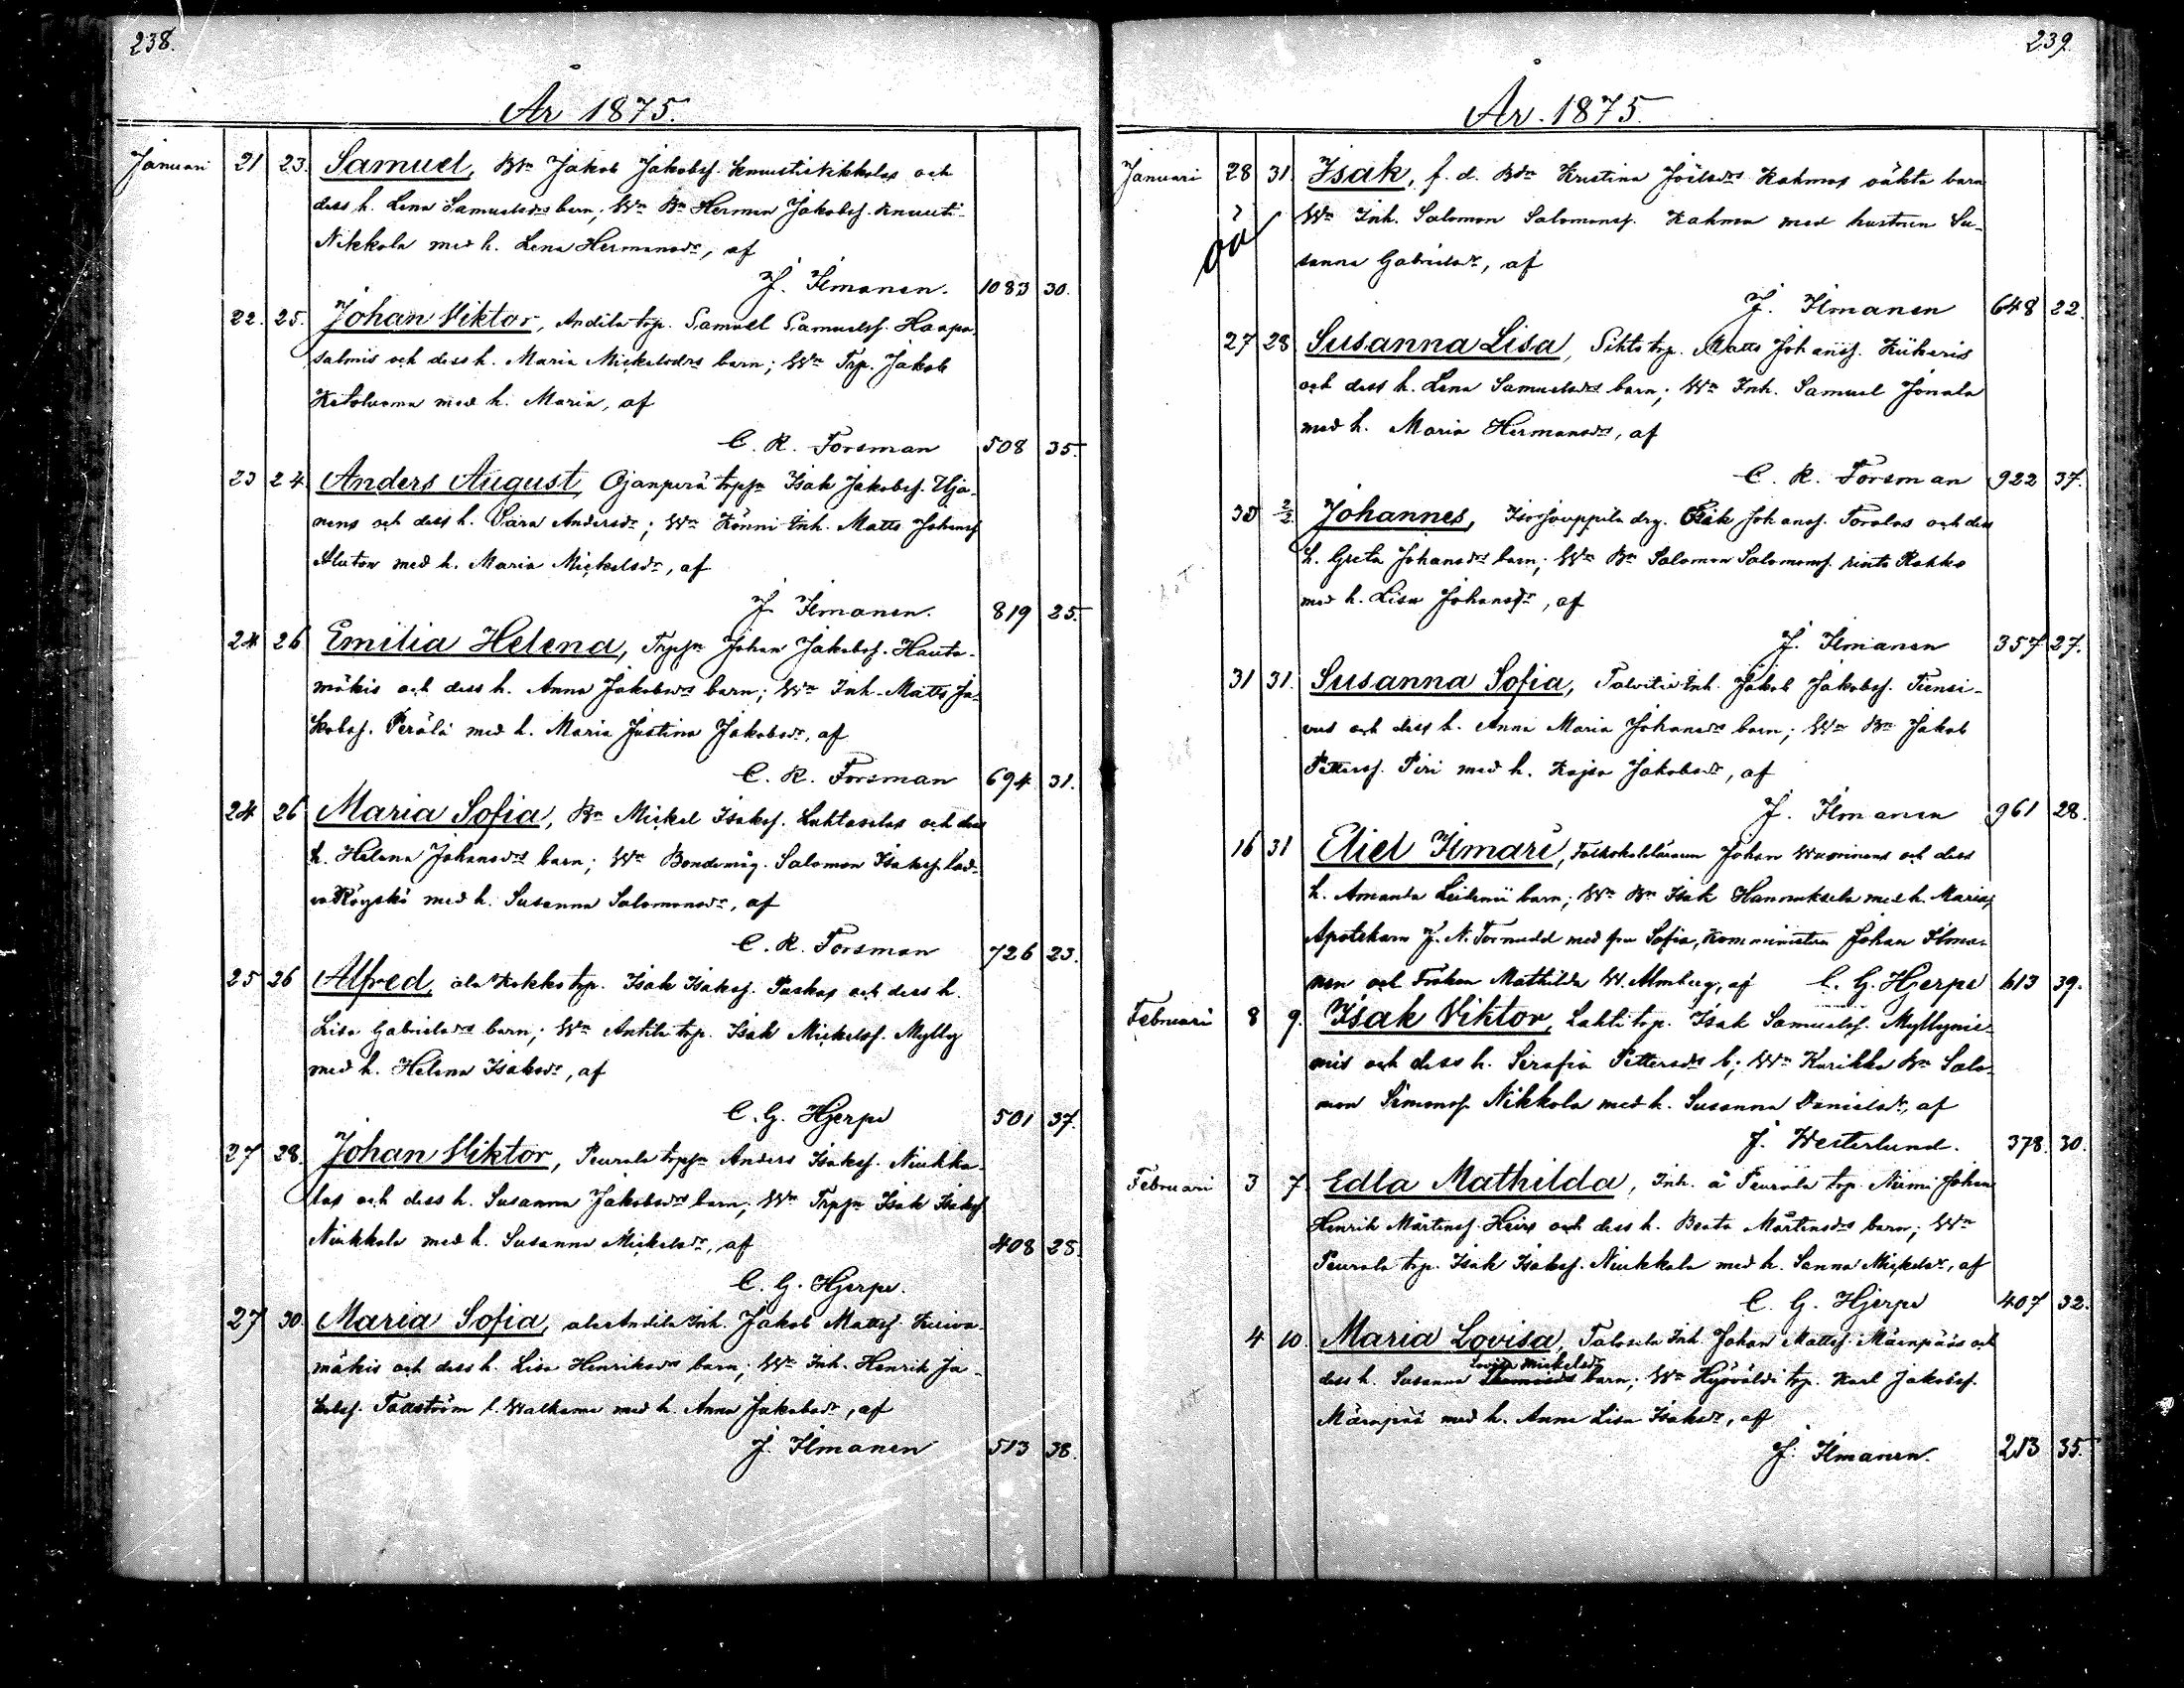 238.
År 1875.
Januari 21 23. Samuel, Bdn Jakob Jakobss. Knuuti Nikkolas och
dess h. Lena Samuelsdrs barn; Wn Bn Herman Jakobss. Knuuti-
Nikkola med h. Lena Hermansdr, af
J. Ilmanen. 1083 30.
22. 25. Johan Viktor, Andila trp. Samuel Samuelss. Haapa-
salmis och dess h. Maria Mickelsdrs barn; Wn Trp. Jakob
Ketoluoma med h. Maria, af
C. R. Forsman 508 35.
23 24. Anders August, Ojanperä trpsn Isak Jakobss. Uja-
nens och dess h. Sara Andersdr; Wn Könni Inh. Matts Johanss
Aluton med h. Maria Mickelsdr, af
J. Ilmanen. 819 25.
24 26 Emilia Helena, Trpsn Johan Jakobss. Hauta-
mäkis och dess h. Anna Jakobsdrs barn; Wn Inh. Matts Ja-
kobss. Perälä med h. Maria Justina Jakobsdr, af
C. R. Forsman 694 31.
24 26 Maria Sofia, Bn Mickel Isakss. Luhtaselas och dess
h. Helena Johansdrs barn; Wn Bondemåg. Salomon Isakss.
Röyskö med h. Susanna Salomonsdr, af
C. R. Forsman 726 23.
25 26 Alfred, ala Kokko trp. Isak Isakss. Paskas och dess h.
Lisa Gabrielsdrs barn; Wn Antila trp. Isak Mickelss. Mylly
med h. Helena Isaksdr, af
C. G. Hjerpe 501 37.
27 28. Johan Viktor, Peurala trpsn Anders Isakss. Niukka-
las och dess h. Susanna Jakobsdrs barn; Wn Trpsn Isak Isakss
Niukkala med h. Susanna Mickelsdr, af 408 28.
C. G. Hjerpe.
27 30. Maria Sofia, ala Andila Inh. Jakob Mattss. Kuiva-
mäkis och dess h. Lisa Henriksdrs barn; Wn Inh. Henrik Ja-
kobss. Taaström l. Walkama med h. Anna Jakobsdr, af
J. Ilmanen 513 38.
239.
År. 1875.
Januari 28 31. Isak, f. d. Bdn Kristina Joelsdrs Kahmas oäkta barn
oä Wn Inh. Salomon Salomonss. Kahma med hustrun Su-
sanna Gabrielsdr, af
J. Ilmanen 648 22.
27 28 Susanna Lisa, Sihto trp. Matts Johanss. Kiiharis
och dess h. Lena Samuelsdrs barn; Wn Inh. Samuel Jonala
med h. Maria Hermansdrs, af
C. R. Forsman 922 37.
30 2/2. Johannes, Iso Jouppila drg. Isak Johanss. Torolas och dess
h. Greta Johansdrs barn; Wn Bn Salomon Salomonss. rinto Kokko
med h. Lisa Johansdr, af
J. Ilmanen 357 27.
31 31. Susanna Sofia, Talvitie Inh. Jakob Jakobss. Tiensi-
vus och dess h. Anna Maria Johansdrs barn; Wn Bn Jakob
Petterss. Piri med h. Kajsa Jakobsdr, af
J. Ilmanen 961 28.
16 31 Eliel Ilmari, Folkskoleläraren Johan Waaninens och dess
h. Amanda Leidenii barn; Wn Bn Isak Hannuksela med h. Maria;
Apotekarn J. N. Tornudd med fru Sofia, Komministern Johan Ilma-
nen och Fröken Mathilda W. Almberg, af C. G. Hjerpe 613 39.
Februari 8 9. Isak Viktor, Lahti trp. Isak Samuelss. Myllynie-
mis och dess h. Serafia Pettersdrs b; Wn Kurikka Bn Salo-
mon Simonss. Nikkola med h. Susanna Danielsdr, af
J. Westerlund. 378. 30.
Februari 3 7. Edla Mathilda, Inh. å Peurala trp. Niemi Johan
Henrik Mårtenss. Heirs och dess h. Beata Mårtensdrs barn; Wn
Peurala trp. Isak Isakss. Niukkala med h. Sanna Mickelsdr, af
C. G. Hjerpe 407 32.
4 10. Maria Lovisa, Talosela Inh. Johan Mattss. Mäenpääs och
Lovisa Mickelsdr
dess h. Susanna barn; Wn Hyövälti trp. Karl Jakobss.
Mäenpää med h. Anna Lisa Isaksdr, af
J. Ilmanen. 213 35.